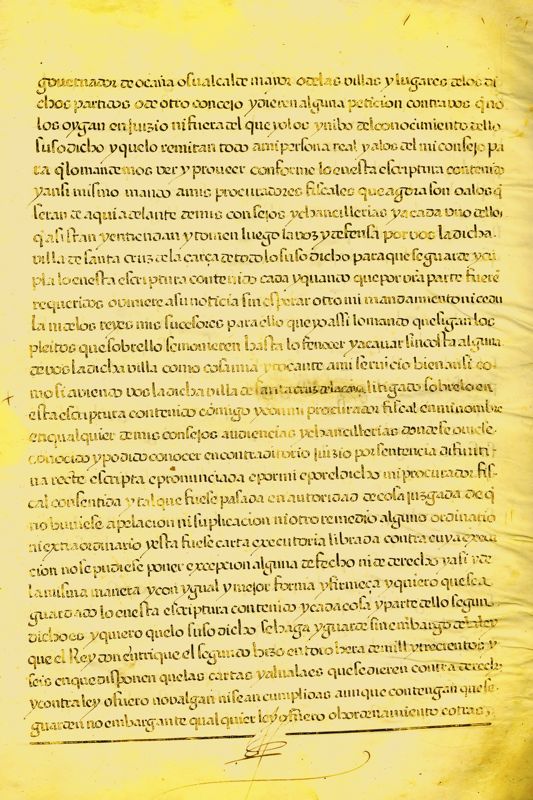 governador de ocaña o su alcalde mayor o de las villas y lugares de los di
chos partidos o de otro concejo y dieren alguna peticion contra vos q̃ no
los oygan en juizio ni fuera del que yo los ynibo del conocimiento dello
suso dicho y que lo remitan todo a mi persona real y a los del mi consejo pa
ra q̃ lo mandemos ver y proveer conforme lo en esta escriptura contenido
y ansi mismo mando a mis procuradores fiscales que agora son o a los q̃
seran de aqui adelante de mis consejos y chancillerias y a cada vno dellos
q̃ asistan y entiendan y tomen luego la voz y defensa por vos la dicha
villa de santa cruz de la çarça de todo lo suso dicho para que se guarde y cũ
pla lo en esta escriptura contenido cada y quando que por vr̃a parte fuerẽ
requeridos o viniere a su noticia sin esperar otro mi mandamiento ni cedu
la ni de los reyes mis sucesores para ello que yo assi lo mando que sigan los
pleitos que sobrello se movieren hasta lo fenecer y acavar sin costa alguna
de vos la dicha villa como cosa mia y tocante a mi servicio bien ansi co
mo si aviendo vos la dicha villa de santa cruz de la çarça litigado sobre lo en
esta escriptura contenido cõmigo y con mi procurador fiscal en mi nombre
en qualquier de mis consejos audiencias y chancillerias donde se oviese
conocido y podido conocer en contraditorio juizio por sentencia difiniti
va recte escripta e pronunciada e por mi e por el dicho mi procurador fis
cal consentida y tal que fuese pasada en autoridad de cosa juzgada de q̃
no huviese apelacion ni suplicacion ni otro remedio alguno ordinario
ni extraordinario y esta fuese carta executoria librada contra cuya execu
cion no se pudiese poner excepcion alguna de fecho ni de derecho y asi y de
la misma manera y con ygual y mejor forma y firmeça y quiero que sea
guardado lo en esta escriptura contenido y cada cosa y parte dello segun
dicho es y quiero que lo suso dicho se haga y guarde sin embargo de la ley
que el Rey don enrrique el segundo hizo en toro hera de mill y trecientos y
seis en que disponen que las cartas y alvalaes que se dieren contra derecho
y contra ley o fuero no valgan ni sean cumplidas aunque contengan que se
guarden no embargante qualquier ley o fuero o hordenamiento e otras